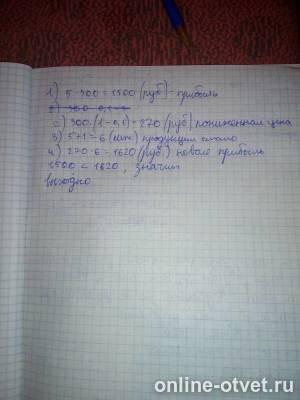 1) 5·300 = 1500 (руб) - прибыль
2) 300·(1-0,1)=270 (руб) пониженная цена
3) 5+1=6 продукции стало
4) 270·6=1620 (руб.) новая прибыль
1500 < 1620, значит
выгодно
online-otvet.ru